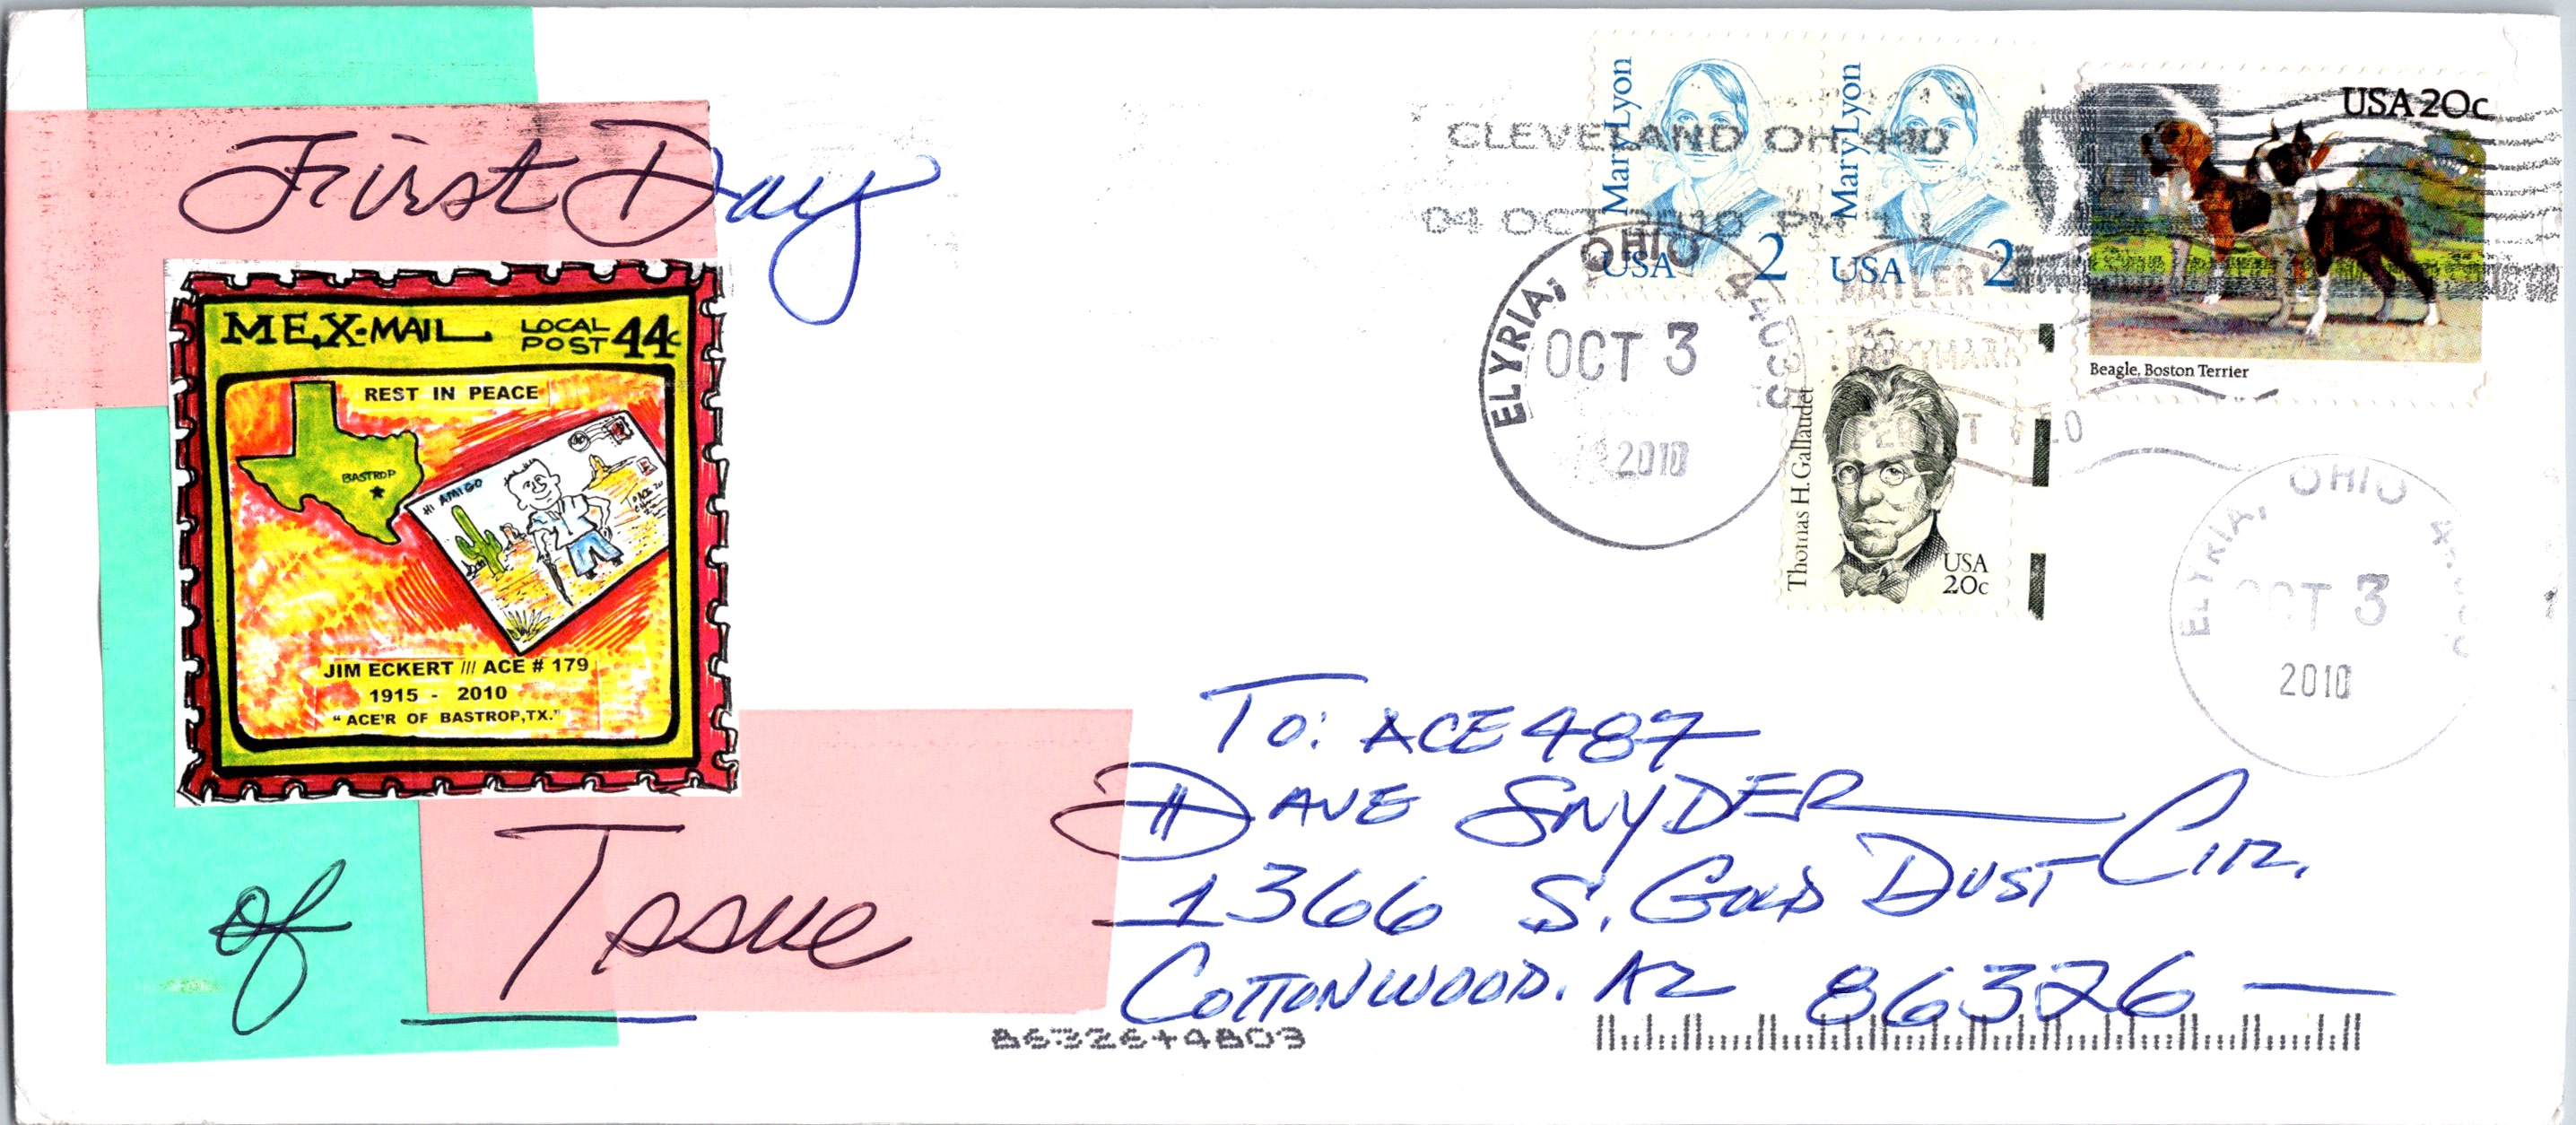 First Day
MEX-MAIL LOCAL POST 44c
REST IN PEACE
BASTROP
HI AMIGO
JIM ECKERT /// ACE # 179
1915 - 2010
" ACE'R OF BASTROP,TX."
of Issue
CLEVELAND OH 440
04 OCT 2010 PM 1 L
Mary Lyon
USA 2
Mary Lyon
USA 2
USA 20c
Beagle, Boston Terrier
ELYRIA, OHIO 44035
OCT 3
2010
MAILER'S
POSTMARK
PERMIT
Thomas H. Gallaudet
USA
20c
ELYRIA, OHIO
OCT 3
2010
To: ACE 487
DAVE SNYDER
1366 S. GOLD DUST CIR.
COTTONWOOD. AZ 86326
86326+4803